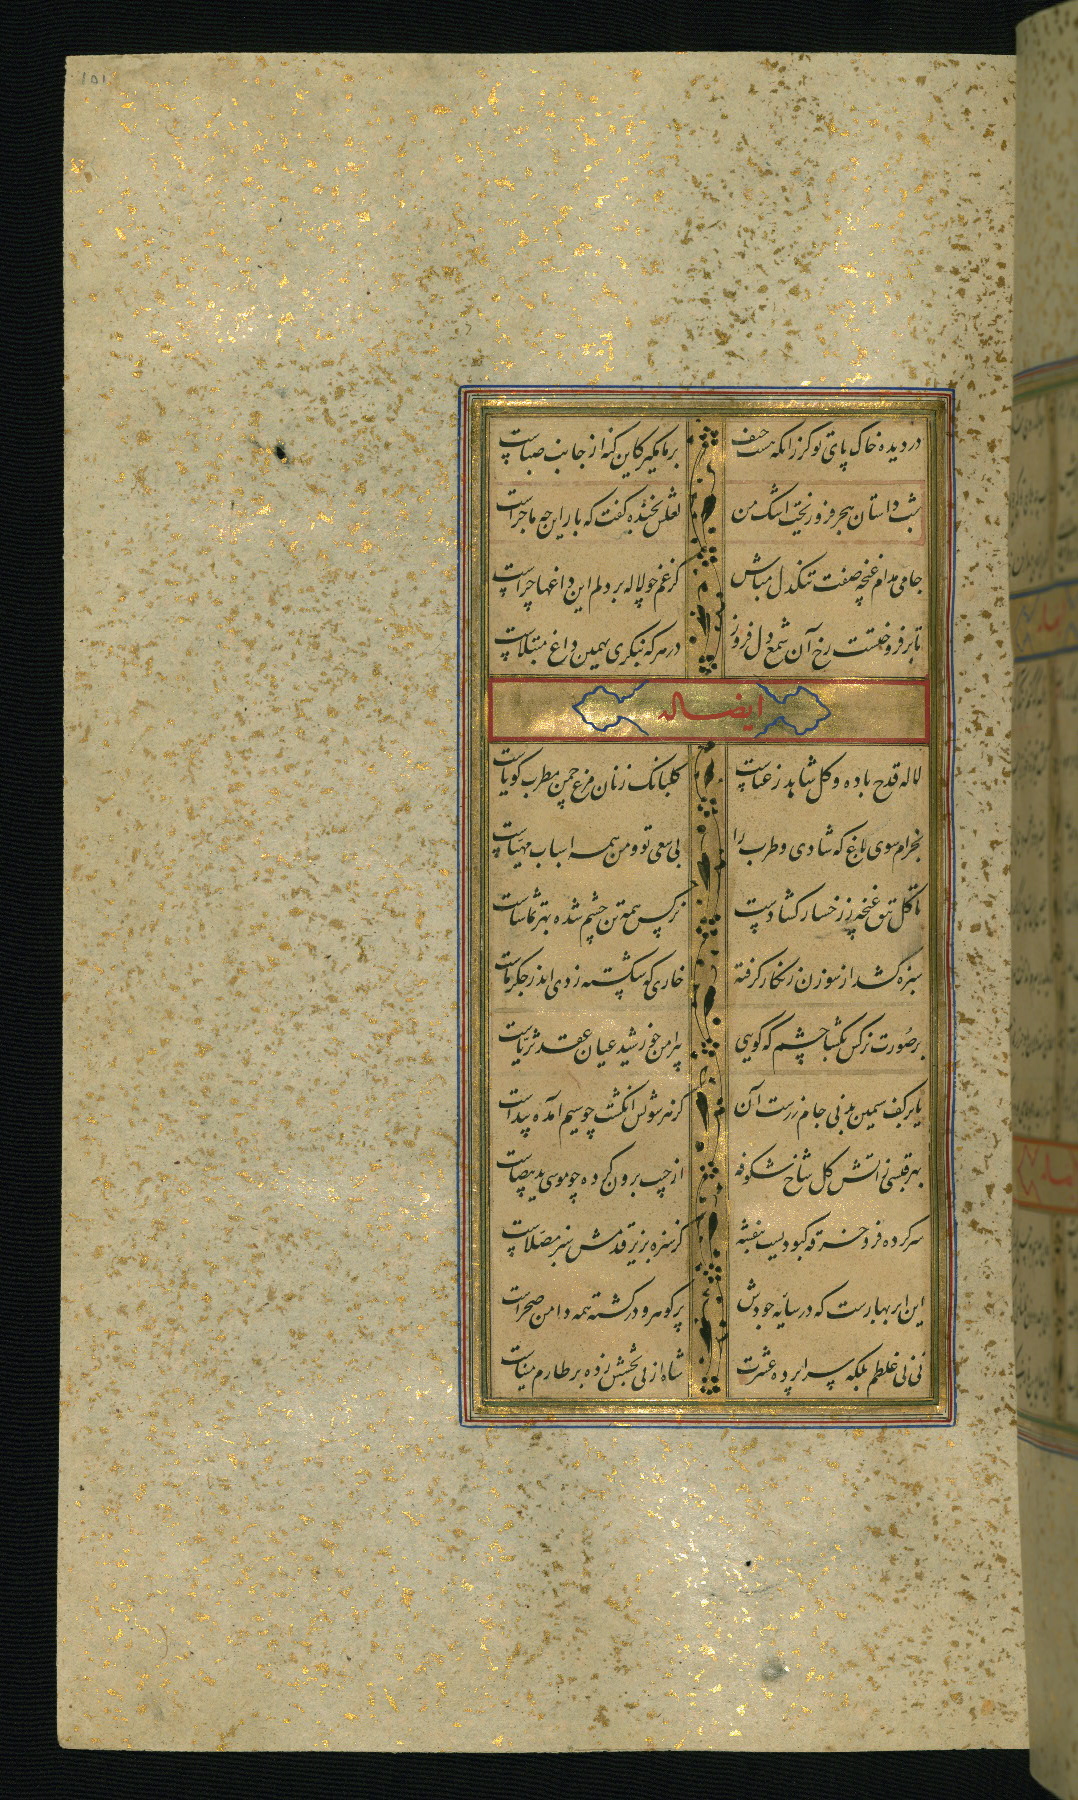 ١٥١
در دیده خاک پای تو گر زانکه هست حیف
بر ما مگیر کاین گنه از جانب صباست
شب داستان هجر فرو ریخت اشک من
لعلش بخنده گفت که باز این چه ماجراست
جامی مدام غنچه صفت تنگدل مباش
کز غم چو لاله بر دلم این داغها چراست
تا برفروختست رخ آن شمع دل فروز
در هر که بنگری بهمین داغ مبتلاست
ایضا له
لاله قدح باده و گل شاهد رعناست
گلبانگ زنان مرغ چمن مطرب گویاست
بخرام سوی باغ که شادی و طرب را
بی سعی تو و من همه اسباب مهیاست
تا گل تتق غنچه ز رخسار گشادست
نرگس همه تن چشم شده بهر تماشاست
سبزه که شد از سوزن زنگار گرفته
خاری که شکسته ز دی اندر جگر ماست
بر صورت نرگس بگشا چشم که گویی
پیرامن خورشید عیان عقد ثریاست
یا بر کف سیمین بدنی جام زرست آن
کز هر سوش انگشت چو سیم آمده پیداست
بهر قبسی ز آتش گل شاخ شکوفه
از جیب برون کرده چو موسی ید بیضاست
سر کرده فرو خرقه کبودیست بنفشه
کز سبزه بزیر قدمش سبز مصلاست
این ابر بهارست که در سایه جودش
پر گوهر و در گشته همه دامن صحراست
نی نی غلطم بلکه سراپرده عشرت
شاه از پی بخشش زده بر طارم میناست